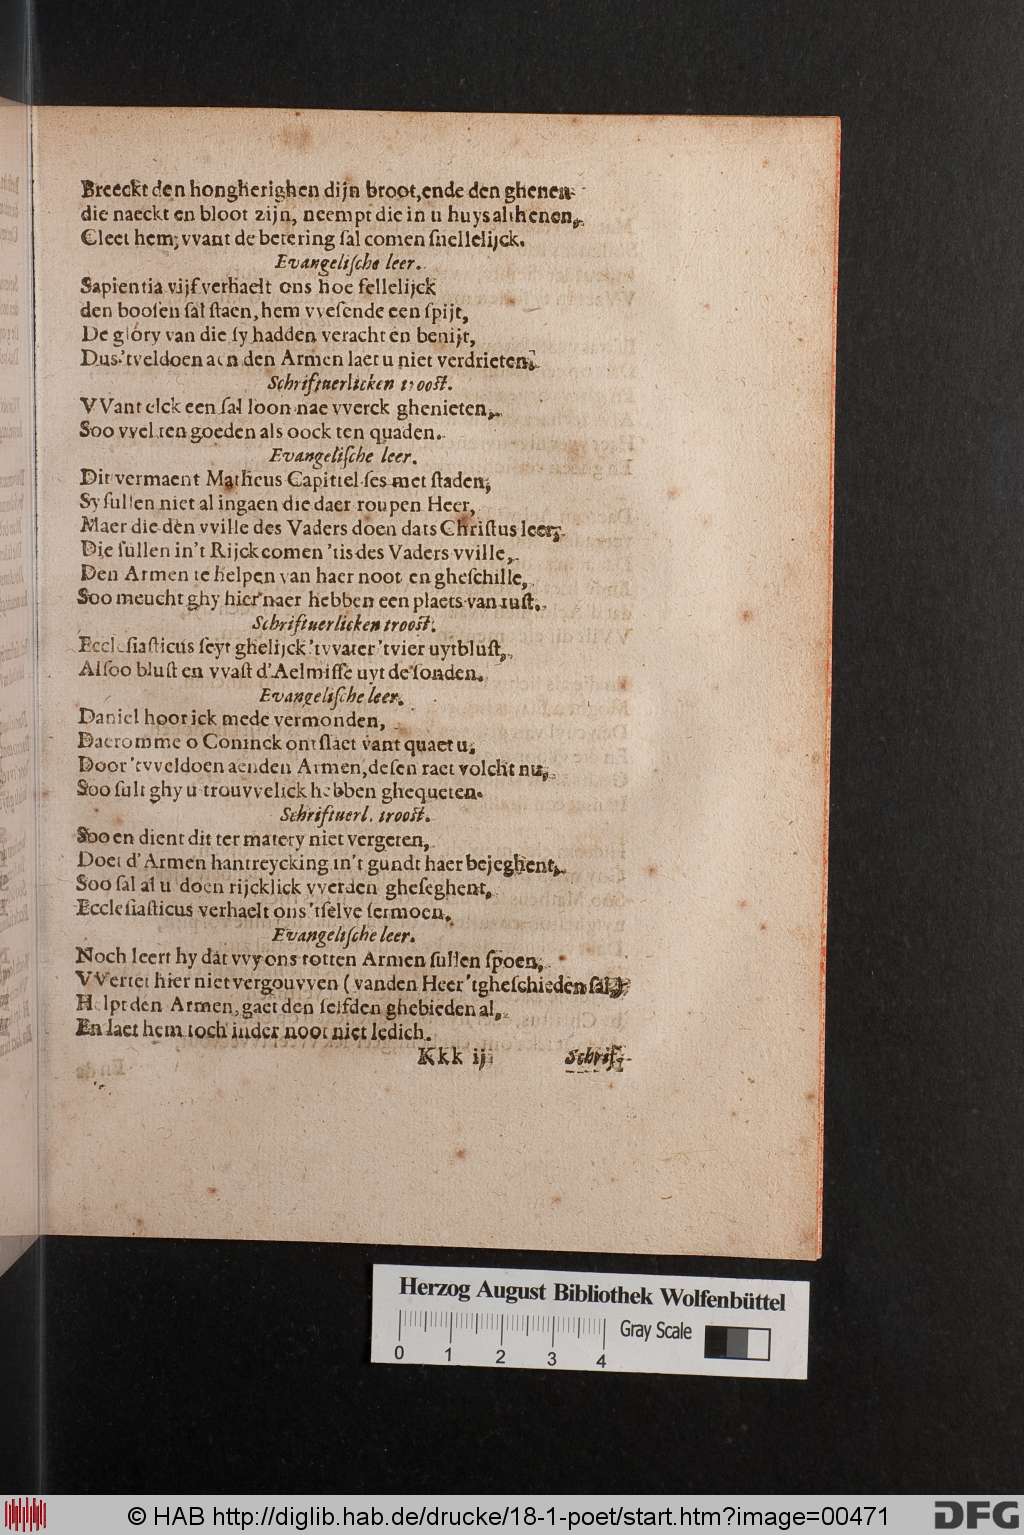 Breeckt den hongherighen dijn broot, ende den ghenen
die naeckt en bloot zijn, neempt die in u huys althenen,
Cleet hem, vvant de betering sal comen snellelijck.
Evangelische leer.
Sapientia vijf verhaelt ons hoe fellelijck
den boosen sal staen, hem vvesende een spijt,
De glory van die sy hadden veracht en benijt,
Dus 'tveldoen aen den Armen laet u niet verdrieten,
Schriftuerlicken troost.
VVant elck een sal loon nae vverck ghenieten,
Soo vvel ten goeden als oock ten quaden.
Evangelische leer.
Dit vermaent Matheus Capittel ses met staden,
Sy sullen niet al ingaen die daer roupen Heer,
Maer die den vville des Vaders doen dats Christus leer,
Die sullen in't Rijck comen 'tis des Vaders vville,
Den Armen te helpen van haer noot en gheschille,
Soo meucht ghy hier naer hebben een plaets van rust.
Schriftuerlicken troost.
Ecclesiasticus seyt ghelijck 'tvvater 'tvier uytblust,
Alsoo blust en vvast d'Aelmisse uyt de sonden.
Evangelische leer.
Daniel hoor ick mede vermonden,
Daeromme o Coninck ontslaet vant quaet u,
Door 'tvveldoen aenden Armen, desen raet volcht nu,
Soo sult ghy u trouvvelick hebben ghequeten.
Schriftuerl. troost.
Soo en dient dit ter matery niet vergeten,
Doet d'Armen hantreycking in't gundt haer bejeghent,
Soo sal al u doen rijcklick vverden gheseghent,
Ecclesiasticus verhaelt ons 'tselve sermoen.
Evangelische leer.
Noch leert hy dat vvy ons totten Armen sullen spoen,
VVertet hier niet vergouvven (vanden Heer 'tgheschieden sal)
Helpt den Armen, gaet den selfden ghebieden al,
En laet hem toch inder noot niet ledich.
Kkk ij Schrif-
Herzog August Bibliothek Wolfenbüttel
Gray Scale
0 1 2 3 4
© HAB http://diglib.hab.de/drucke/18-1-poet/start.htm?image=00471 DFG